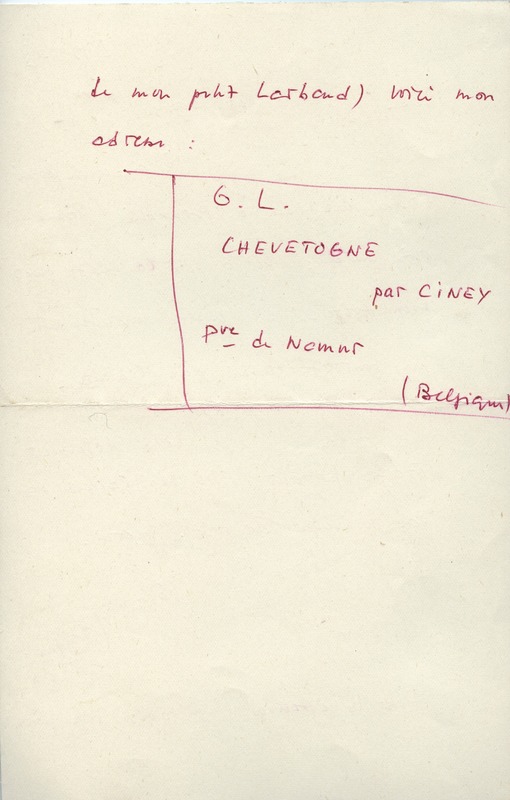 de mon petit Larbaud) voici mon
adresse :
G. L.
CHEVETOGNE
par CiNEY
Pve de Namur
(Belgique)